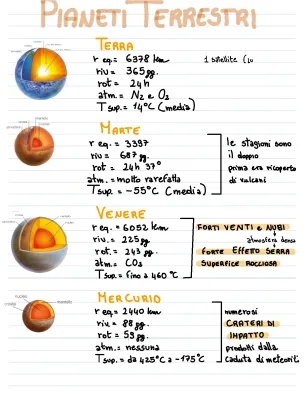 PIANETI TERRESTRI
TERRA
r eq. = 6378 km
riv = 365 gg.
rot = 24h
atm. = N₂ e O₂
T sup. = 14°C (media)
1 satellite
MARTE
r eq. = 3397
riv = 687 gg.
rot = 24h 37'
atm. = molto rarefatta
T sup. = -55°C (media)
le stagioni sono
il doppio
prima era ricoperto
di vulcani
VENERE
r eq. = 6052 km
riv. = 225 gg
rot. = 243 gg.
atm = CO₂
T sup. = fino a 460 °C
FORTI VENTI e NUBI
atmosfera densa
FORTE EFFETTO SERRA
SUPERFICE ROCCIOSA
MERCURIO
r eq = 2440 km
riv = 88 gg.
rot = 59 gg.
atm. = nessuna
T sup. = da 425°C a -175°C
numerosi
CRATERI DI
IMPATTO
prodotti dalla
caduta di meteorit
nucleo
mantello
crosta